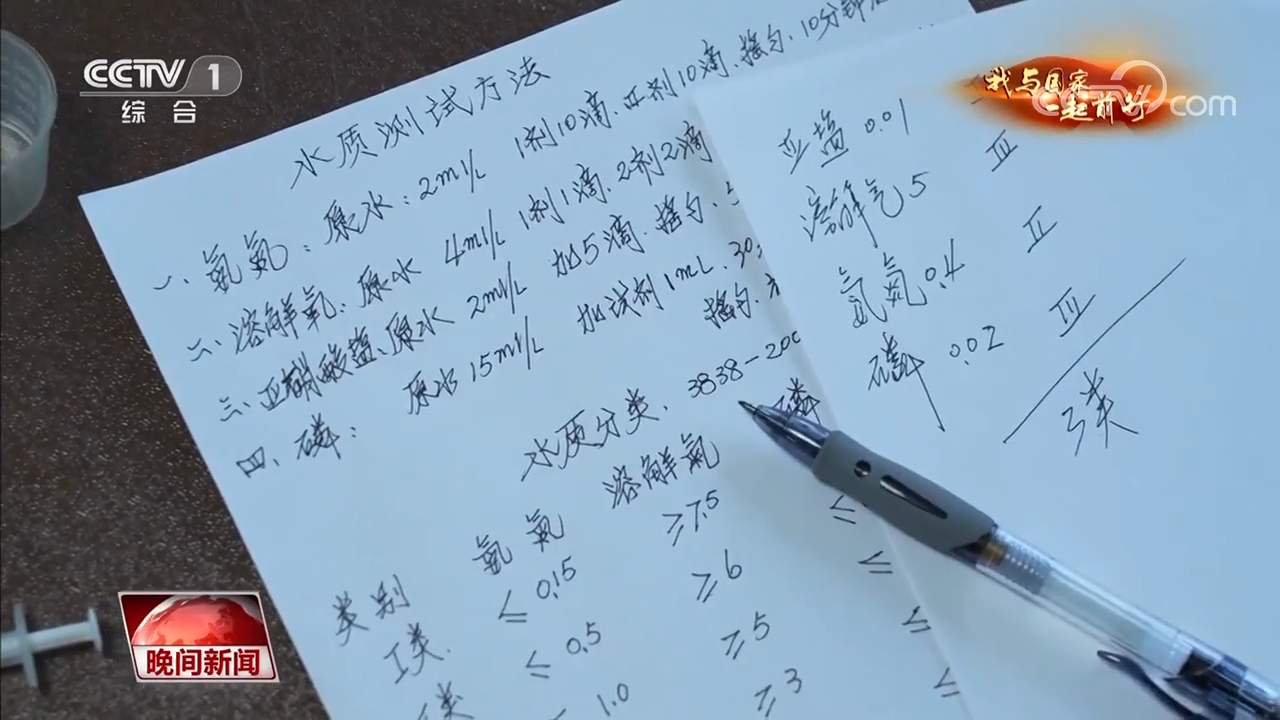 CCTV 1
综合
我与国家
一起前行
com
水质测试方法
一、氨氮:原水:2ml/L 1剂10滴、亚剂10滴、摇匀、10分钟
二、溶解氧、原水 4ml/L 1剂1滴、2剂2滴
三、亚硝酸盐、原水 2ml/L 加5滴、摇匀、5
四、磷: 原水15ml/L 加试剂1mL、30
摇匀、
水质分类、3838-200
类别 氨氮 溶解氧 磷
I类 ≤0.15 ≥7.5 ≤
类 ≤0.5 ≥6 ≤
1.0 ≥5 ≤
≥3 ≤
亚盐 0.01
溶解气 5 Ⅲ
氨氮 0.4 Ⅱ
磷 0.02 Ⅲ
3类
晚间新闻